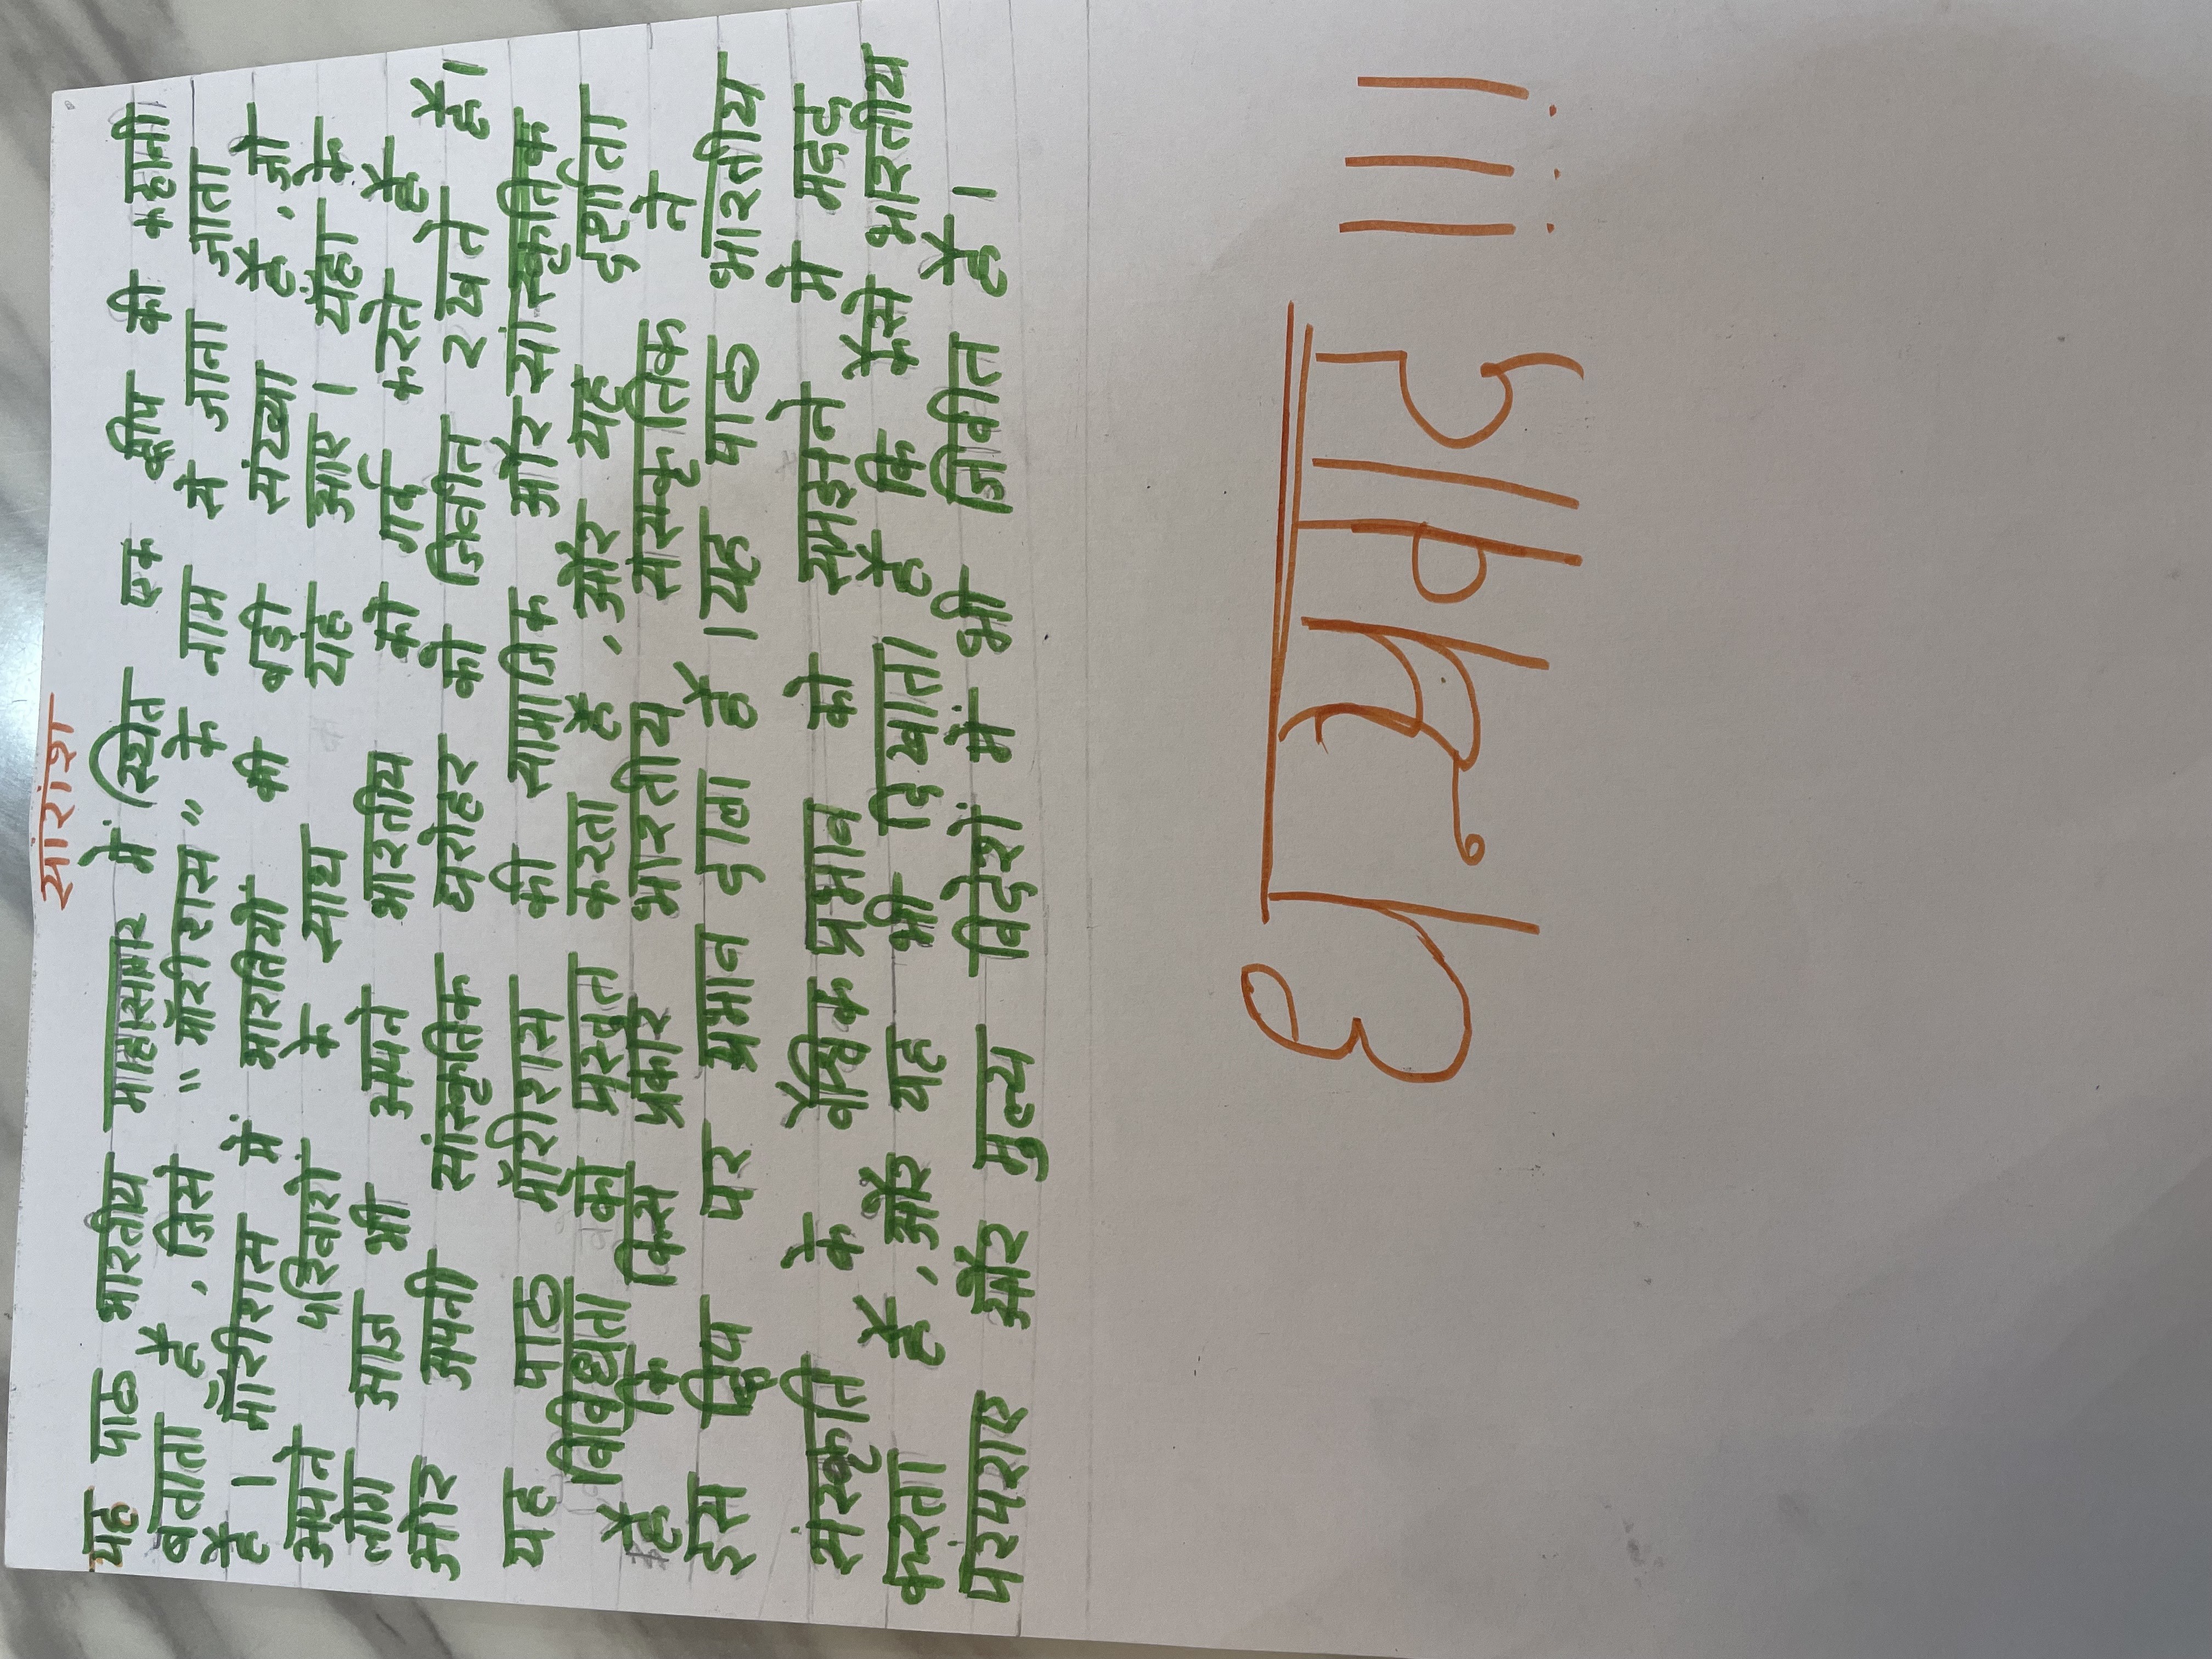 सांरांश
यह पाठ भारतीय माहासागर में स्थित एक द्वीप की कहानी
बताता है , जिसे "मॉरीशस" के नाम से जाना जाता
है । मॉरीशस में भारतियों की बड़ी संख्या है , जो
अपने परिवारों के साथ यहं आए । यँहा के
लोग आज भी अपने भारतीय को गर्व करते है
ओर अपनी सांस्कृतिक धरोहर को जिवीत रखते है।
यह पाठ मॉरीशस की सामाजिक और सांस्कृतिक
विविधता को प्रस्तुत करता है , और यह दर्शाता
है कि किस प्रकार भारतीय संस्कृतिक ने
इस द्विप पर प्रभाव दाला है । यह पाठ भारतीय
संस्कृति के वैश्विक प्रभाव को समझने मे मदद
करता है , और यह भी दिखाता है कि कैसे भारतीय
परंपराए और मुल्य विदेशों में भी जिवीत है ।
धन्यवाद !!!